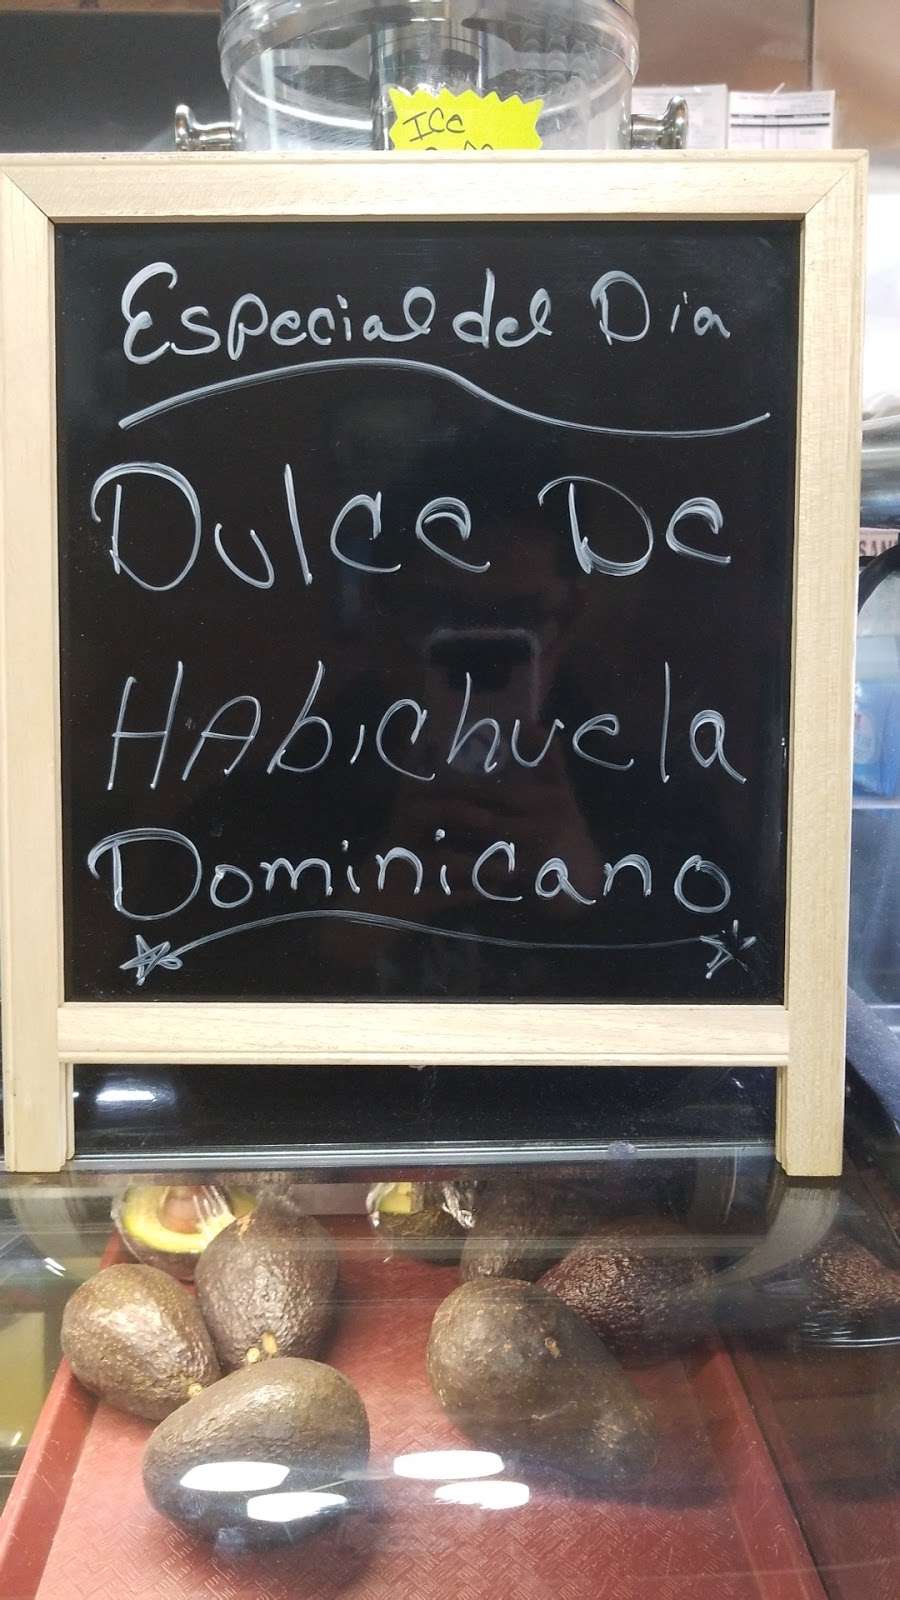 Ice
Especial del Dia
Dulce De
HAbichuela
Dominicano